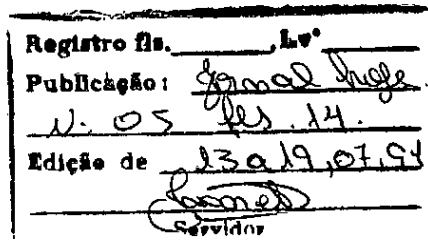 Registro fls. ________, Lvº ________
Publicação: Jornal hoje.
N: 05 fls. 14.
Edição de 13 a 19,07,94
Servidor